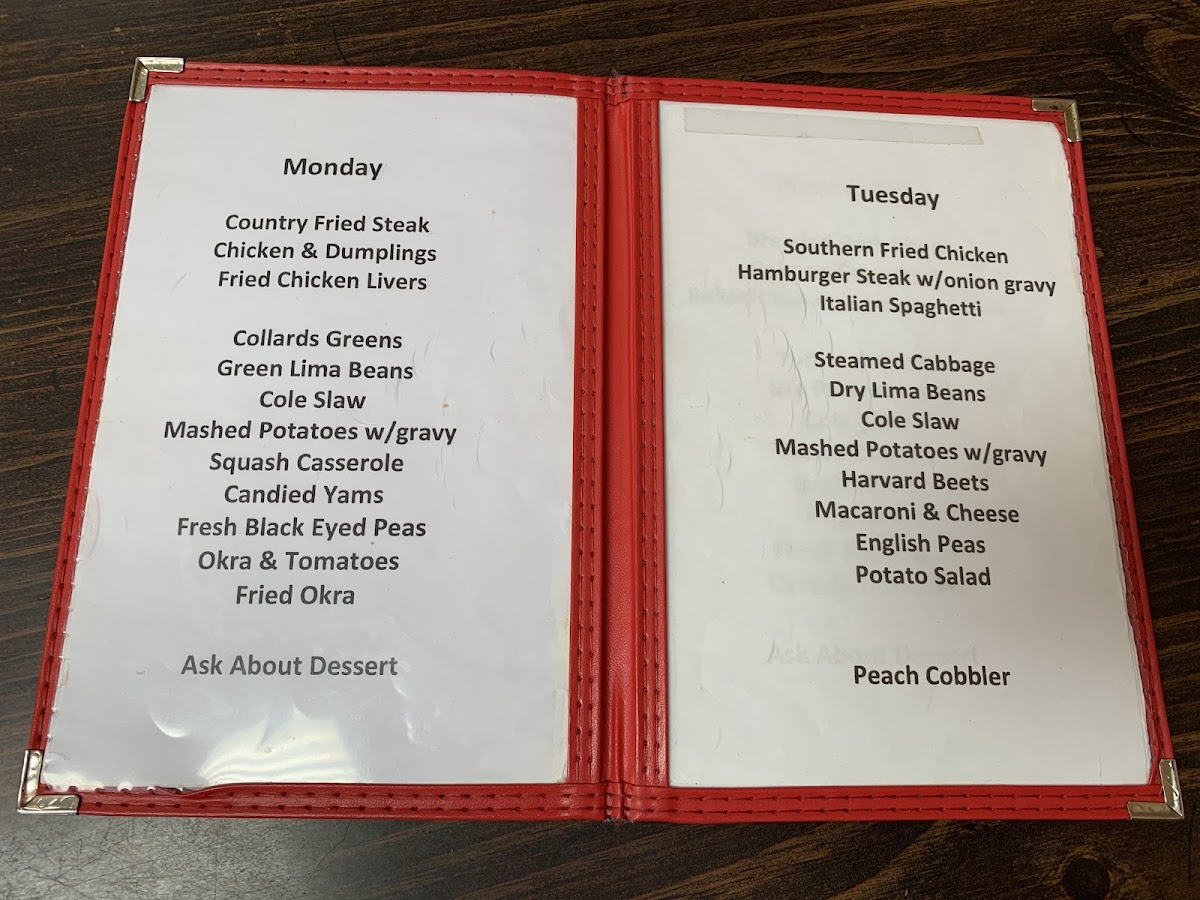 Monday
Country Fried Steak
Chicken & Dumplings
Fried Chicken Livers
Collards Greens
Green Lima Beans
Cole Slaw
Mashed Potatoes w/gravy
Squash Casserole
Candied Yams
Fresh Black Eyed Peas
Okra & Tomatoes
Fried Okra
Ask About Dessert
Tuesday
Southern Fried Chicken
Hamburger Steak w/onion gravy
Italian Spaghetti
Steamed Cabbage
Dry Lima Beans
Cole Slaw
Mashed Potatoes w/gravy
Harvard Beets
Macaroni & Cheese
English Peas
Potato Salad
Peach Cobbler